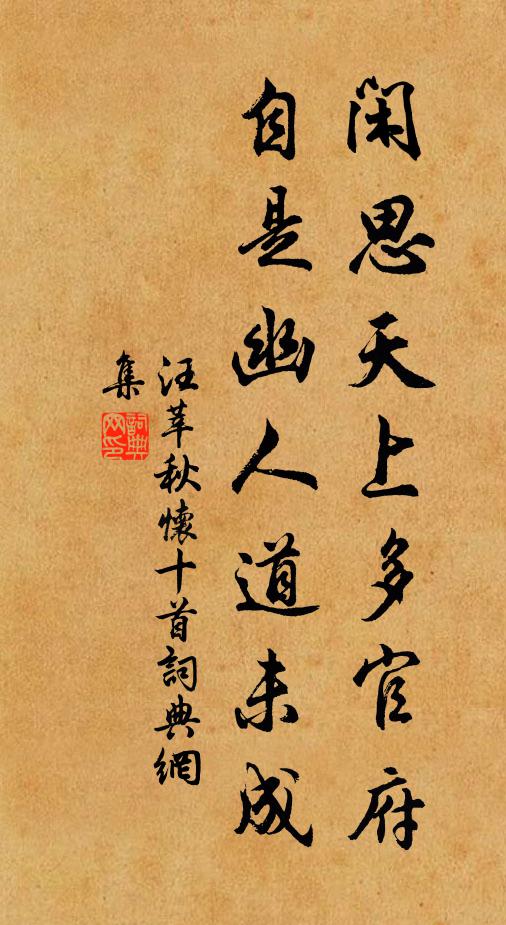 閑思天上多官府
自是幽人道未成
汪莘秋懷十首詞典網
集
詞典
网印